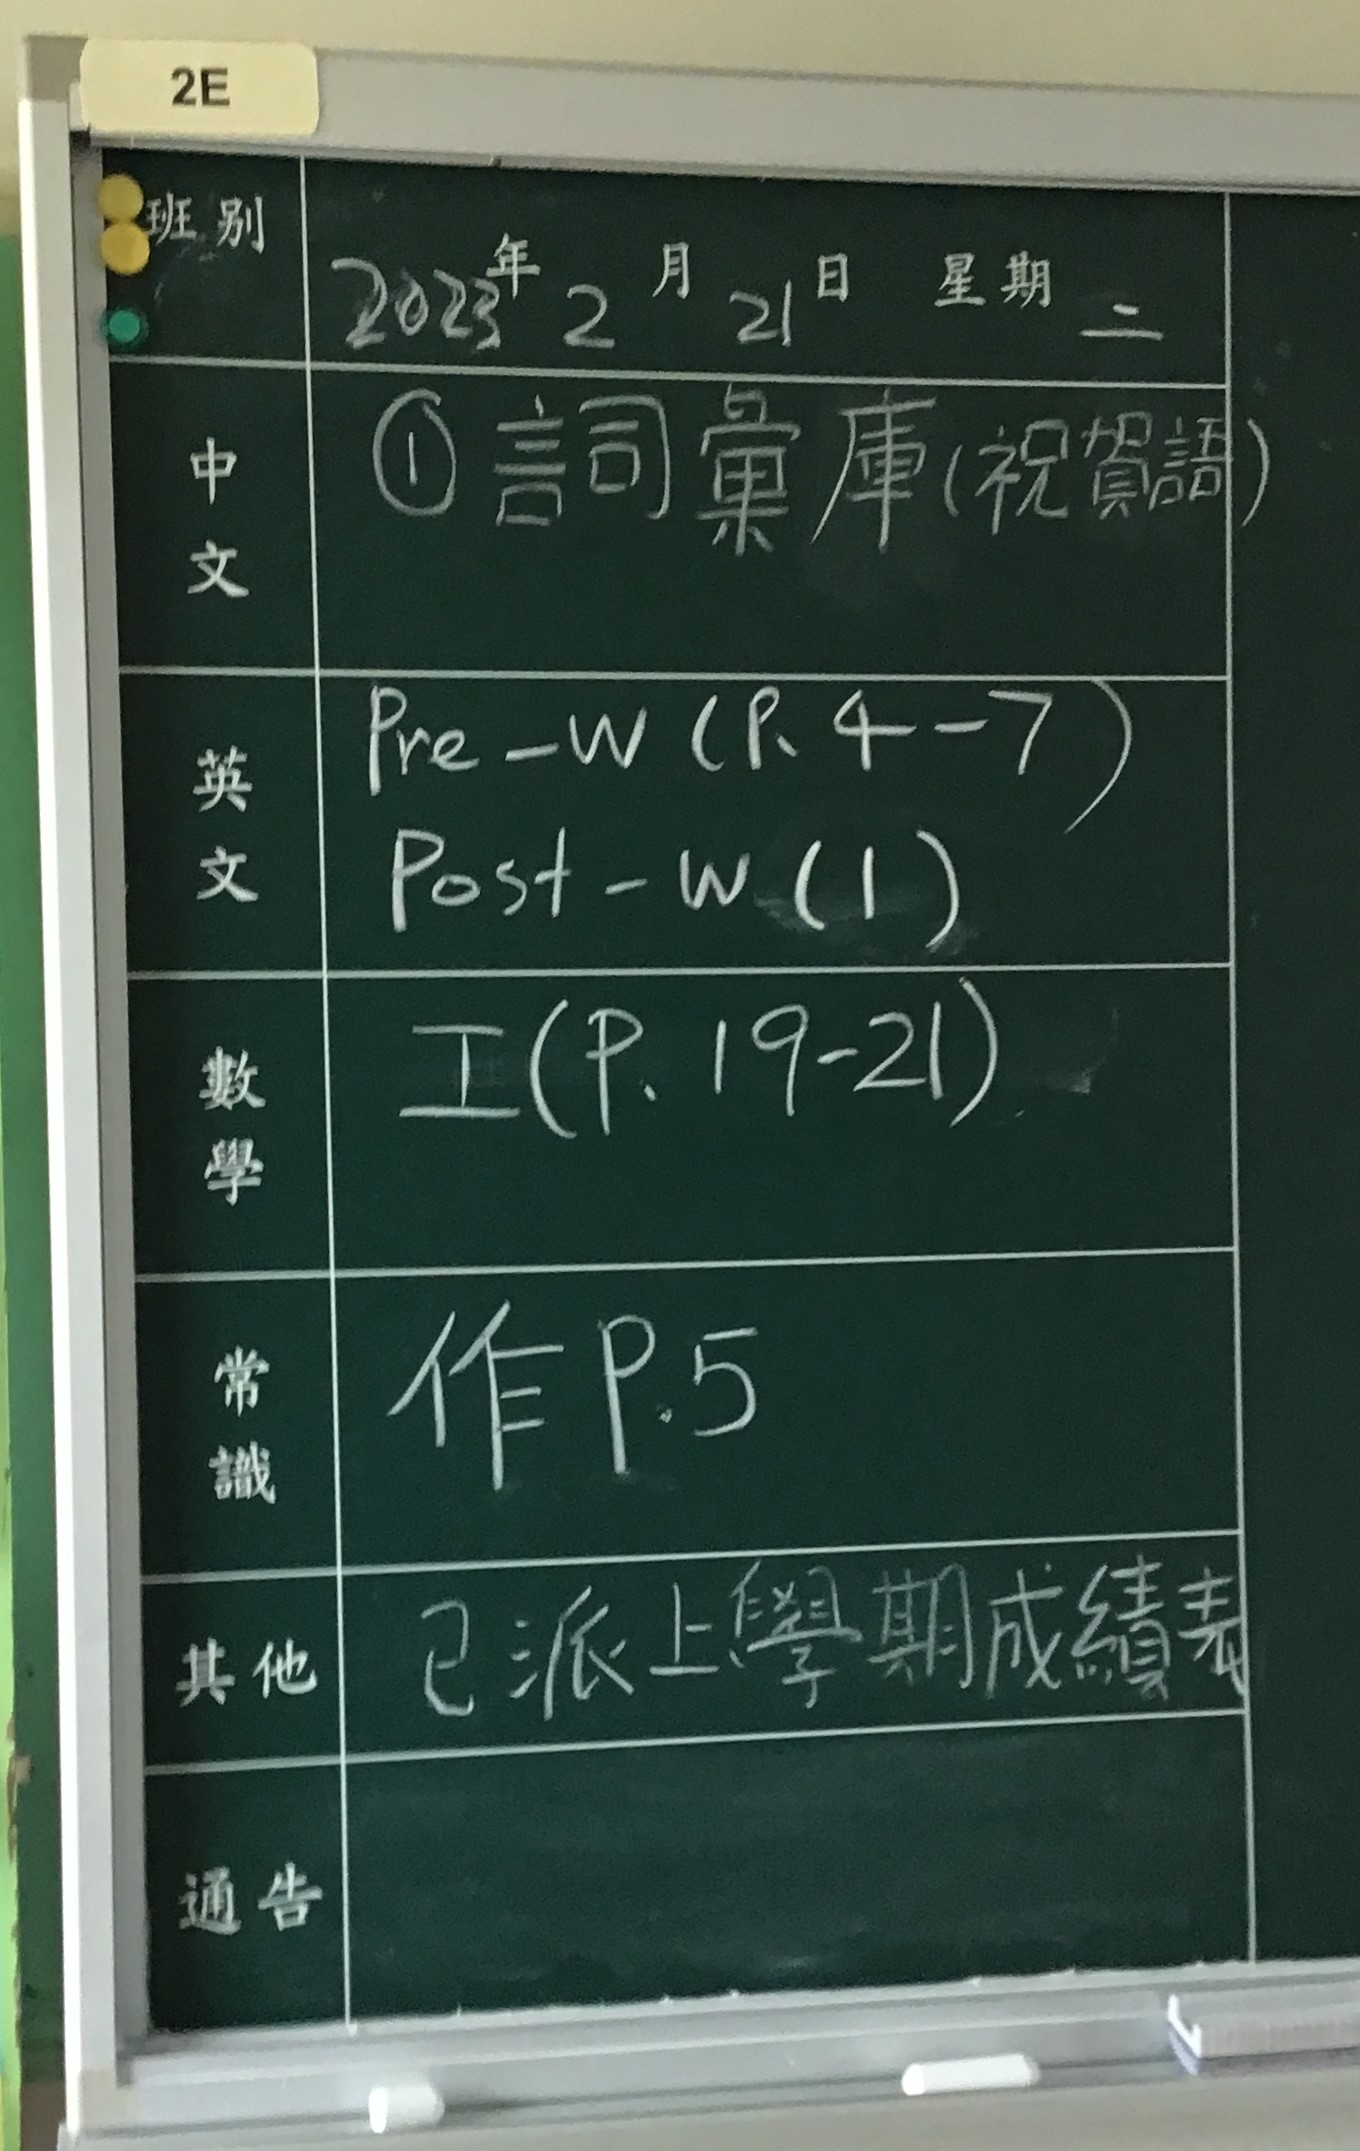 2E
班別
2023年2月21日 星期二
中文
① 詞彙庫(祝賀語)
英文
Pre-W (P. 4-7)
Post-W (1)
數學
工(P. 19-21)
常識
作P.5
其他
已派上學期成績表
通告